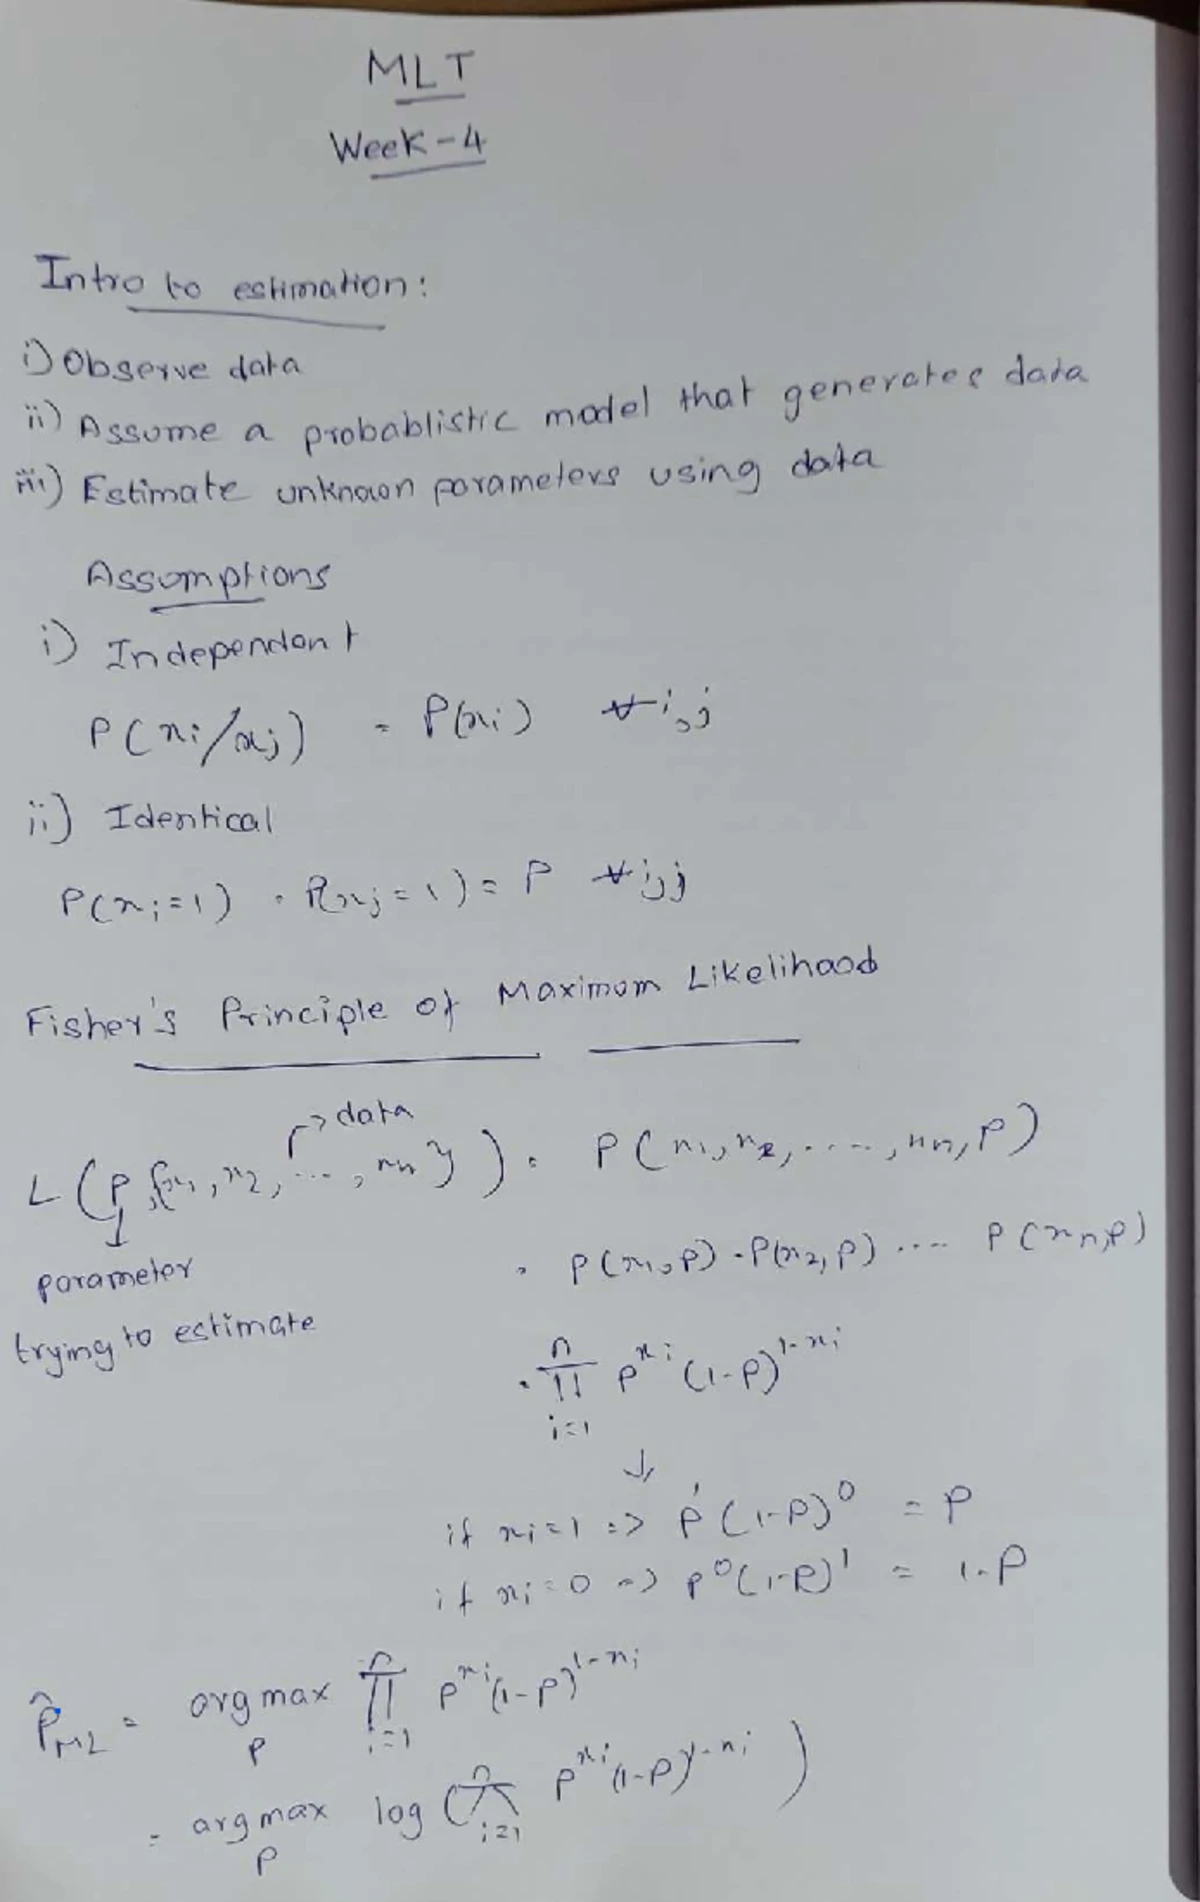 MLT
Week-4
Intro to estimation:
i) Observe data
ii) Assume a probablistic model that generates data
iii) Estimate unknown parameters using data
Assumptions
i) Independant
P(xi/xj) = P(xi) ∀ i,j
ii) Identical
P(xi=1) = P(xj=1) = P ∀ i,j
Fisher's Principle of Maximum Likelihood
→ data
L(p,{x1,x2,...,xn}) = P(x1,x2,....,xn,P)
parameter
= P(x1,P) . P(x2,P) .... P(xn,P)
trying to estimate
= n∏i=1 p^xi (1-p)^1-xi
↓
if xi=1 => p^1 (1-p)^0 = P
if xi=0 => p^0 (1-p)^1 = 1-P
p̂ML = arg max p n∏i=1 p^xi (1-p)^1-xi
= arg max p log (n∏i=1 p^xi (1-p)^1-xi)